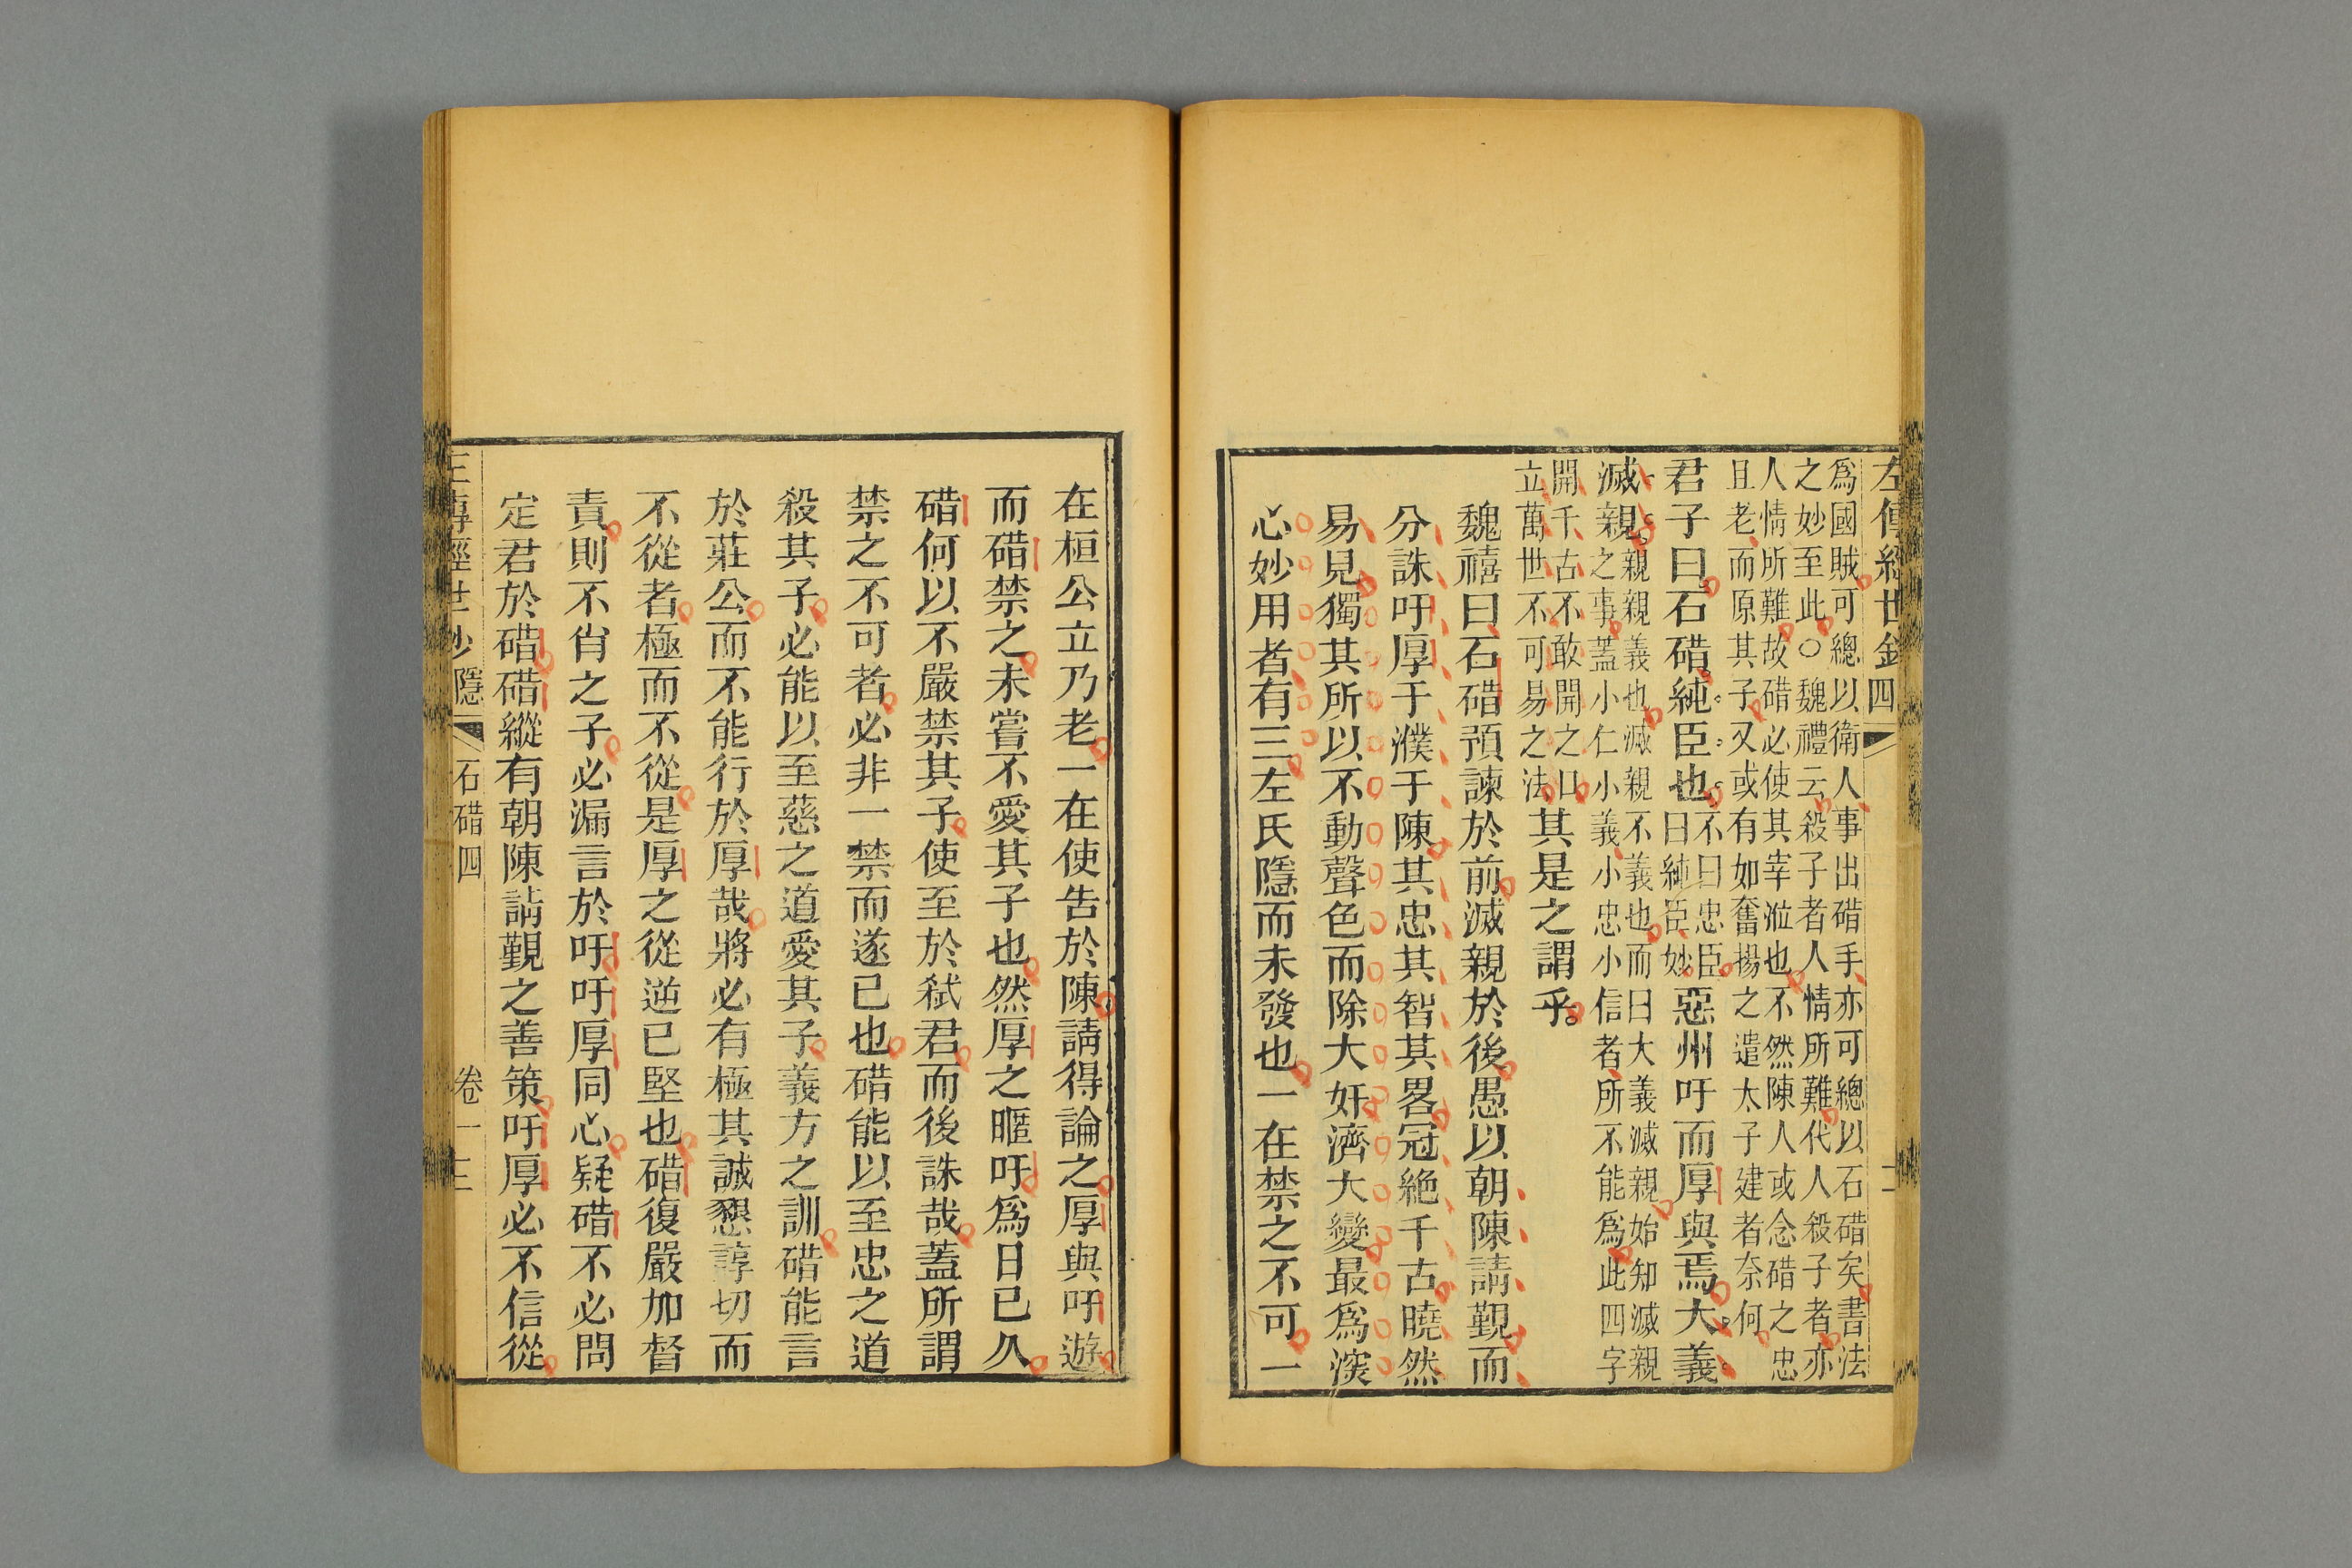 左傳經世鈔 四
爲國賊可總以衛人事出碏手亦可總以石碏矣書法
之妙至此○魏禮云殺子者人情所難代人殺子者亦
人情所難故碏必使其宰涖也不然陳人或念碏之忠
且老而原其子又或有如奮揚之遣太子建者奈何
君子曰石碏純臣也
不曰忠臣
曰純臣妙
惡州吁而厚與焉大義
滅親
親親義也滅親不義也而曰大義滅親始知滅親
之事蓋小仁小義小忠小信者所不能爲此四字
開千古不敢開之口
立萬世不可易之法
其是之謂乎
魏禧曰石碏預諫於前滅親於後愚以朝陳請覲而
分誅吁厚于濮于陳其忠其智其畧冠絶千古曉然
易見獨其所以不動聲色而除大奸濟大變最爲深
心妙用者有三左氏隱而未發也一在禁之不可一
在桓公立乃老一在使告於陳請得論之厚與吁遊
而碏禁之未嘗不愛其子也然厚之暱吁爲日已久
碏何以不嚴禁其子使至於弑君而後誅哉蓋所謂
禁之不可者必非一禁而遂已也碏能以至忠之道
殺其子必能以至慈之道愛其子義方之訓碏能言
於莊公而不能行於厚哉將必有極其誠懇諄切而
不從者極而不從是厚之從逆已堅也碏復嚴加督
責則不肖之子必漏言於吁吁厚同心疑碏不必問
定君於碏碏縱有朝陳請覲之善策吁厚必不信從
隱 石碏四 卷一 三